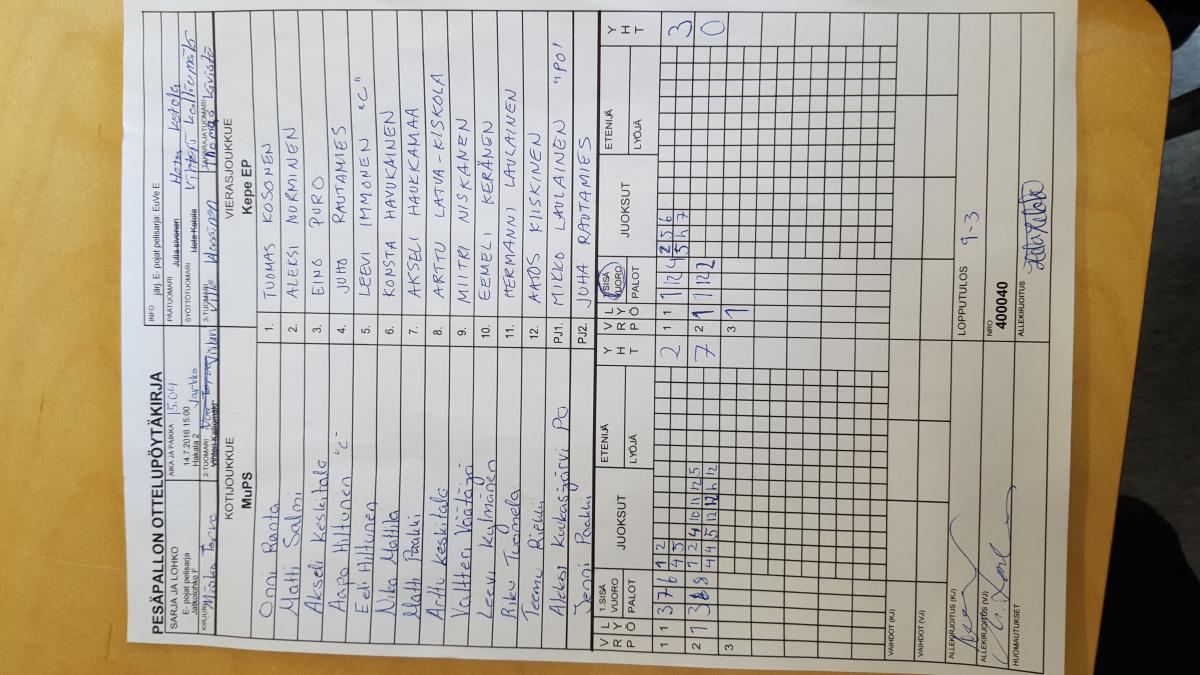 PESÄPALLON OTTELUPÖYTÄKIRJA
INFO järj. E- pojat pelisarja: EuVe E
SARJA JA LOHKO
E- pojat pelisarja
Jatkolohko F
AIKA JA PAIKKA 15:04
14.7.2016 15:00
Hakala 2
PÄÄTUOMARI
Julia Sivonen
Heta Ketola
SYÖTTÖTUOMARI
Heta Ketola
Vihtori Kalliomäki
KIRJURI
2-TUOMARI
Vihtori Kalliomäki
Jarkko
3-TUOMARI
Ville Hassinen
TAKARAJATUOMARI
Thomas
KOTIJOUKKUE
MuPS
VIERASJOUKKUE
Kepe EP
Onni Ranta
1. TUOMAS KOSONEN
Matti Salmi
2. ALEKSI NURMINEN
Akseli Keskitalo
3. EINO PURO
Aapo Hiltunen "C"
4. JUHO RAUTAMIES
Eedi Hiltunen
5. LEEVI IMMONEN "C"
Nika Mattila
6. KONSTA HAVUKAINEN
Matti Paakki
7. AKSELI HAUKKAMAA
Arttu Keskitalo
8. ARTTU LATVA-KISKOLA
Valtteri Väätäjä
9. MIITRI NISKANEN
Leevi Kylmänen
10. EEMELI KERÄNEN
Riku Tuomela
11. HERMANNI LAULAINEN
Teemu Riekki
12. AATOS KIISKINEN
Aleksi Kuukasjärvi PO
PJ1. MIKKO LAULAINEN "PO"
Jenni Paakki
PJ2. JUHA RAUTAMIES
V R P L Y Ö 1.SISÄ VUORO PALOT JUOKSUT ETENIJÄ LYÖJÄ Y H T
V R P L Y Ö 1.SISÄ VUORO PALOT JUOKSUT ETENIJÄ LYÖJÄ Y H T
1 1 3 7 6 1 2 2
4 5
1 1 1 12 4 2 5 6 3
5 h 7
2 1 3 8 1 2 4 10 11 12 5 7
4 4 5 12 12 h 12
2 1 1 12 2 0
3
3 1
VAIHDOT (KJ)
VAIHDOT (VJ)
ALLEKIRJOITUS (KJ)
LOPPUTULOS 9-3
ALLEKIRJOITUS (VJ)
NRO
400040
HUOMAUTUKSET
ALLEKIRJOITUS
Heta Ketola